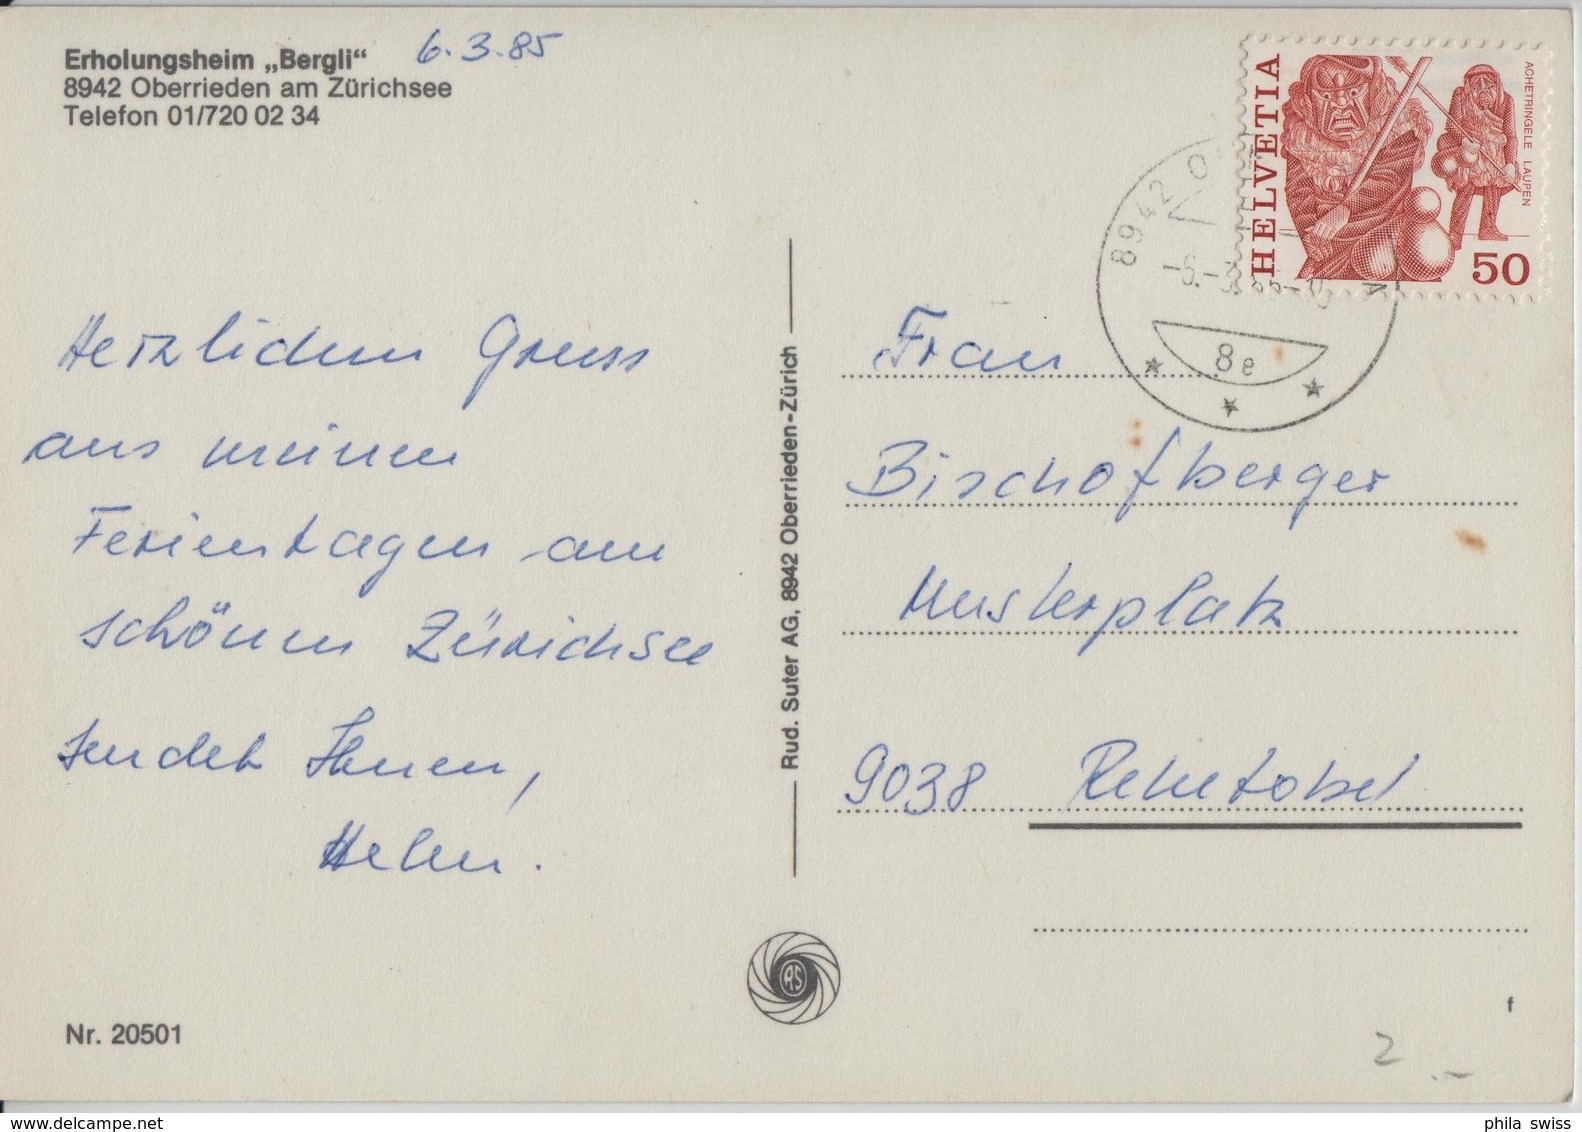 Erholungsheim „Bergli“ 6.3.85
8942 Oberrieden am Zürichsee
Telefon 01/720 02 34
HELVETIA
ACHETRINGELE LAUPEN
50
8942 O
-6.-3.85-
8e
Herzlichen Gruss
aus meinen
Ferientagen am
schönen Zürichsee
sendet Ihnen,
Helen.
Rud. Suter AG, 8942 Oberrieden-Zürich
Frau
Bischofberger
Musterplatz
9038 Rehetobel
RS
Nr. 20501
f
2.-
phila swiss